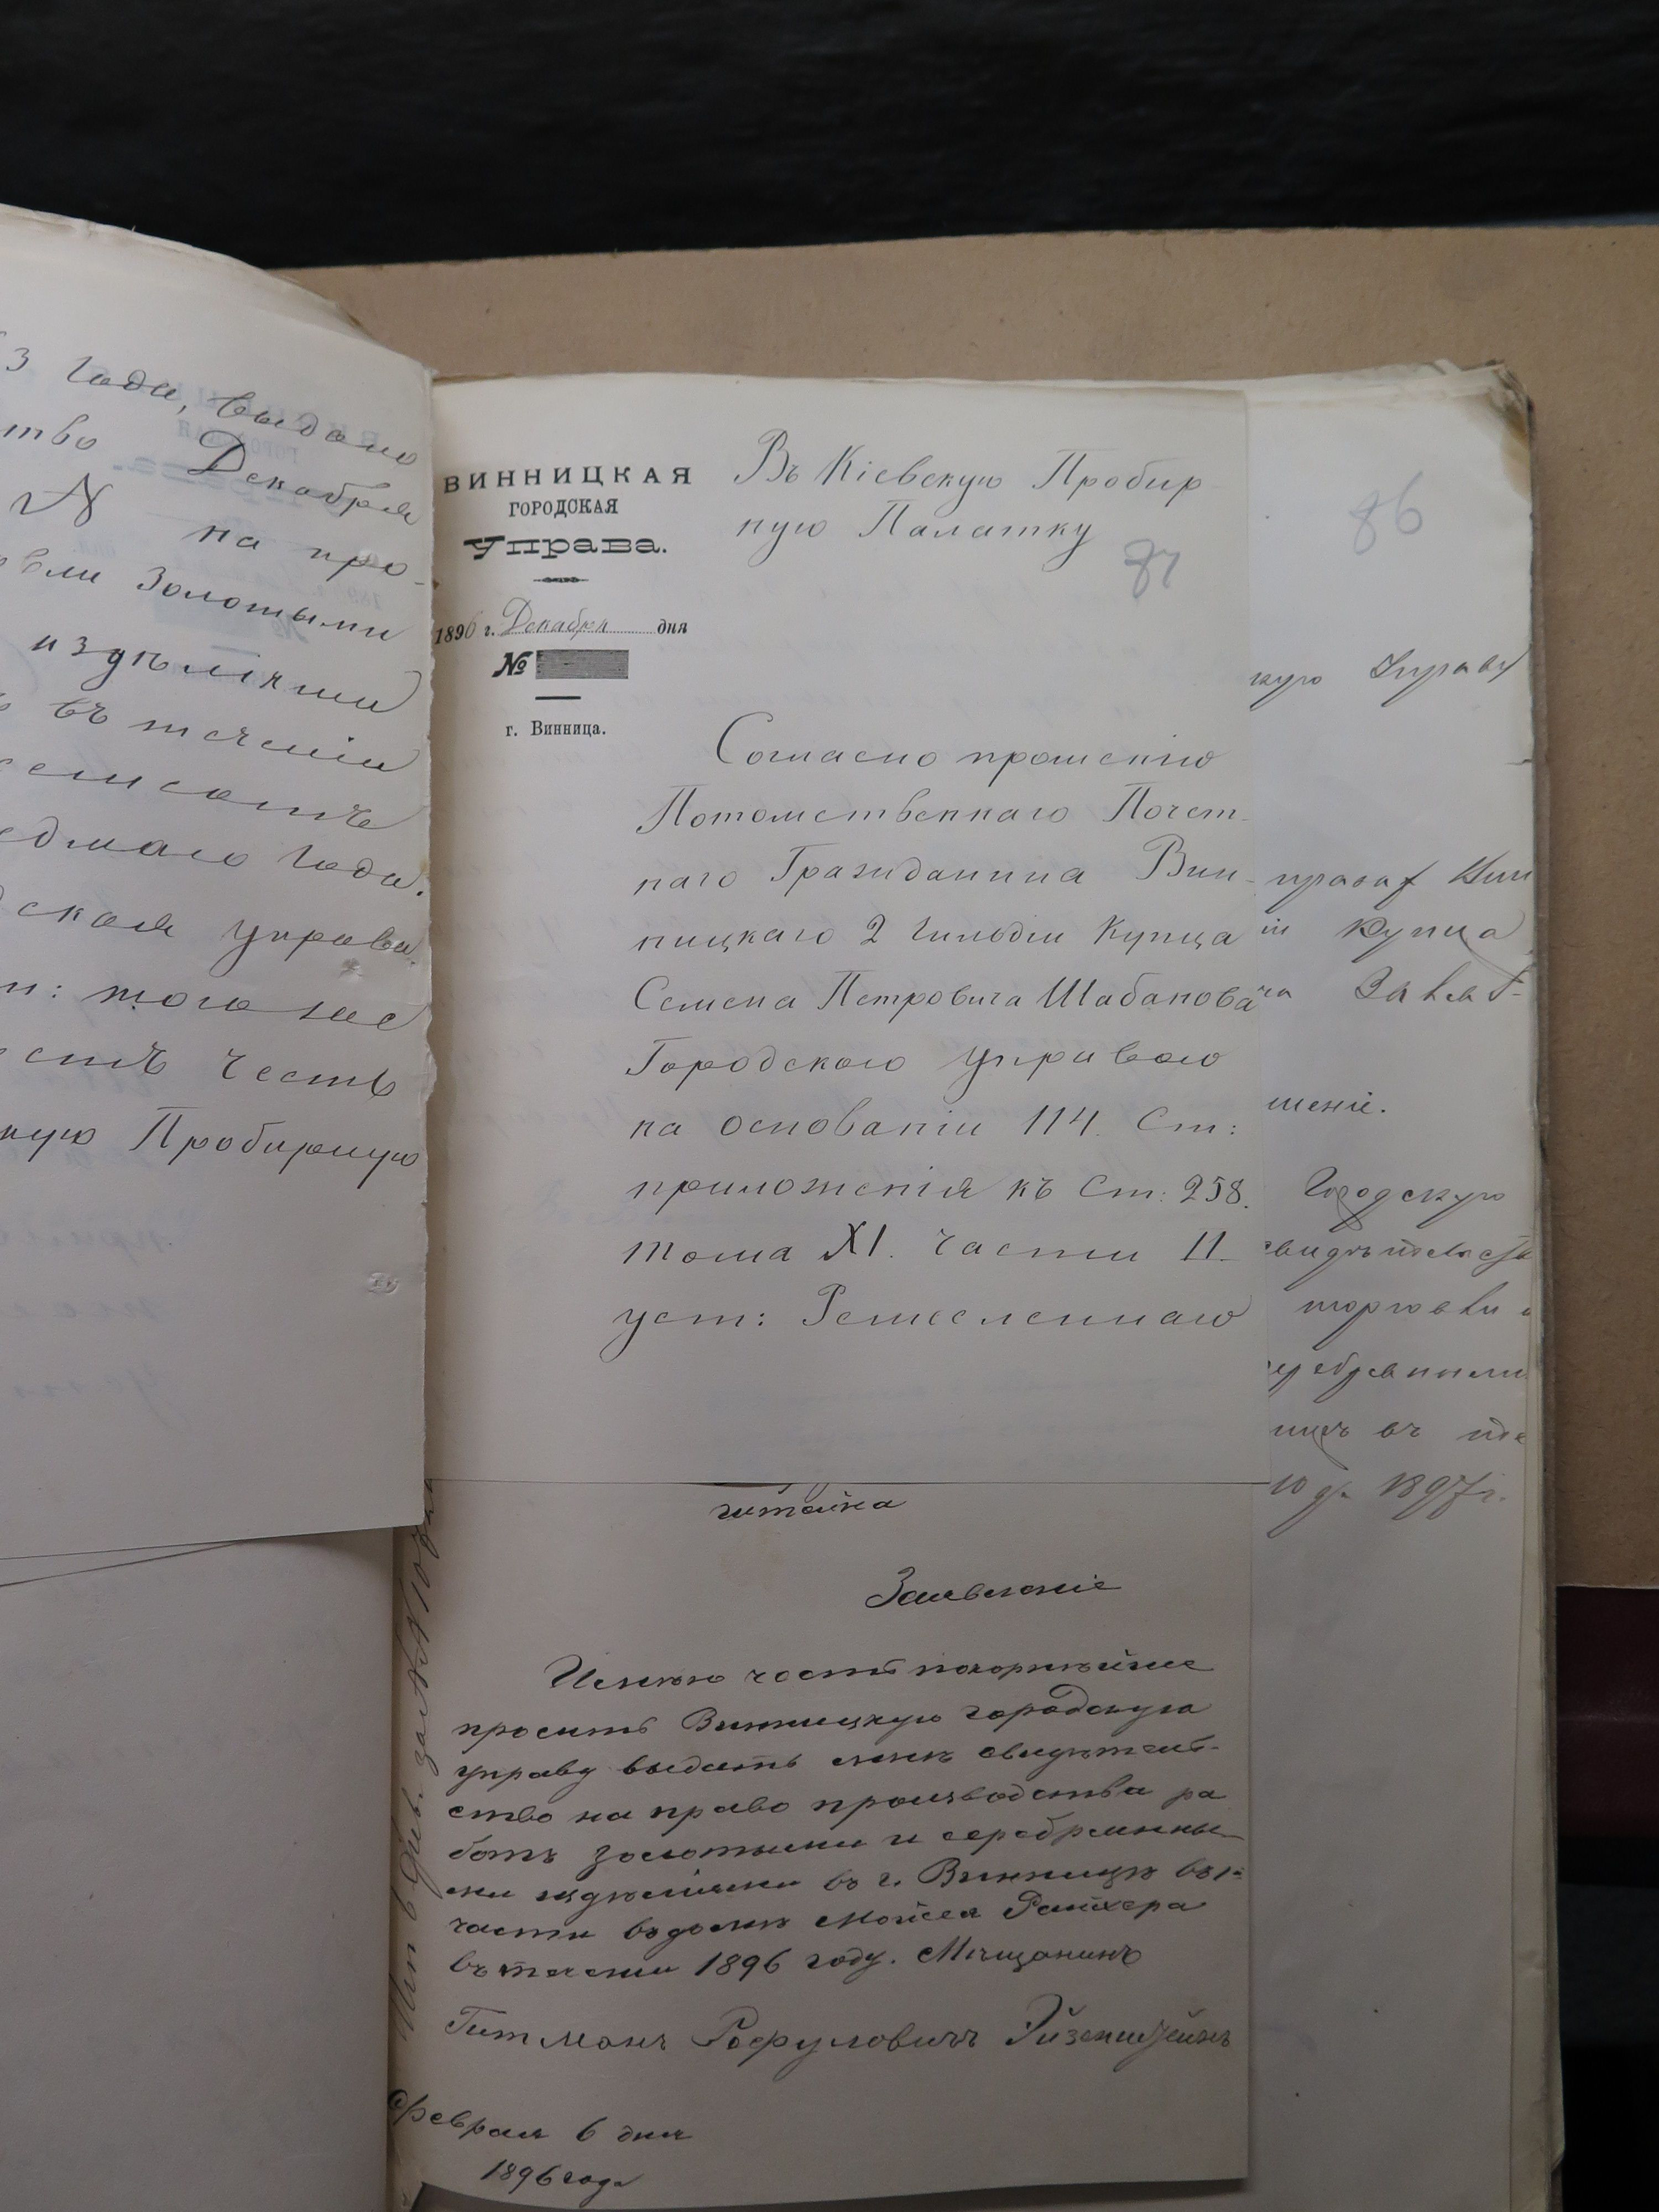 3 года, выдано
тво Декабря
N на про-
вли золотыми
издѣліями
въ теченіи
семисотъ
едмаго года.
ская управа
и: того же
стъ честь
ную Пробирную
ВИННИЦКАЯ
ГОРОДСКАЯ
Управа.
1896 г. Декабря дня
№
г. Винница.
Въ Кіевскую Пробир
ную Палатку
87
Согласно прошенію
Потомственнаго Почет-
наго Гражданина Вин-
ницкаго 2 Гильдіи Купца
Семена Петровича Шабанова
Городскою управою
на основаніи 114. Ст:
приложенія къ Ст: 258.
тома XI. части II.
уст: Ремесленнаго
86
кую Управу
купца
шеніе.
Городскую
свидѣтельств
торговли
въ
году 1897 г.
штейна
Заявленіе
Имѣю честь покорнѣйше
просить Винницкую городскую
управу выдать мнѣ свидѣтель-
ство на право производства ра
ботъ золотыми и серебрянны-
ми издѣліями въ г. Винницѣ въ 1й
части въ домѣ Мойсея Райхера
въ теченіи 1896 году. Мѣщанинъ
Гитманъ Рафуловичъ Эйзенштейнъ
Февраля 6 дня
1896 года